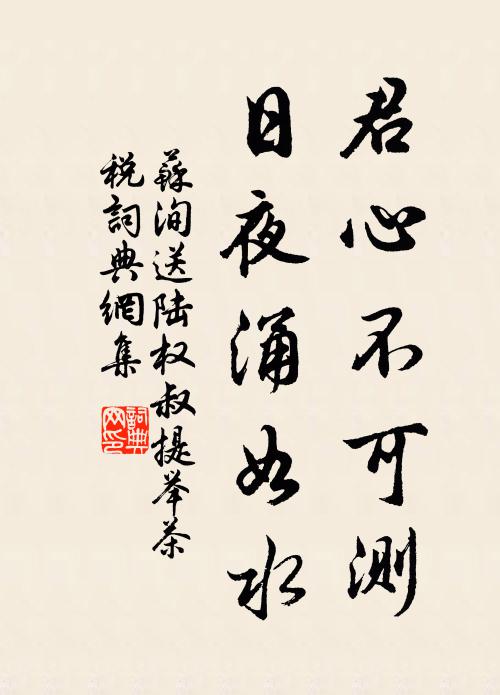 君心不可測
日夜涌如水
蘇洵送陆权叔提举茶
税詞典網集
詞典
网印